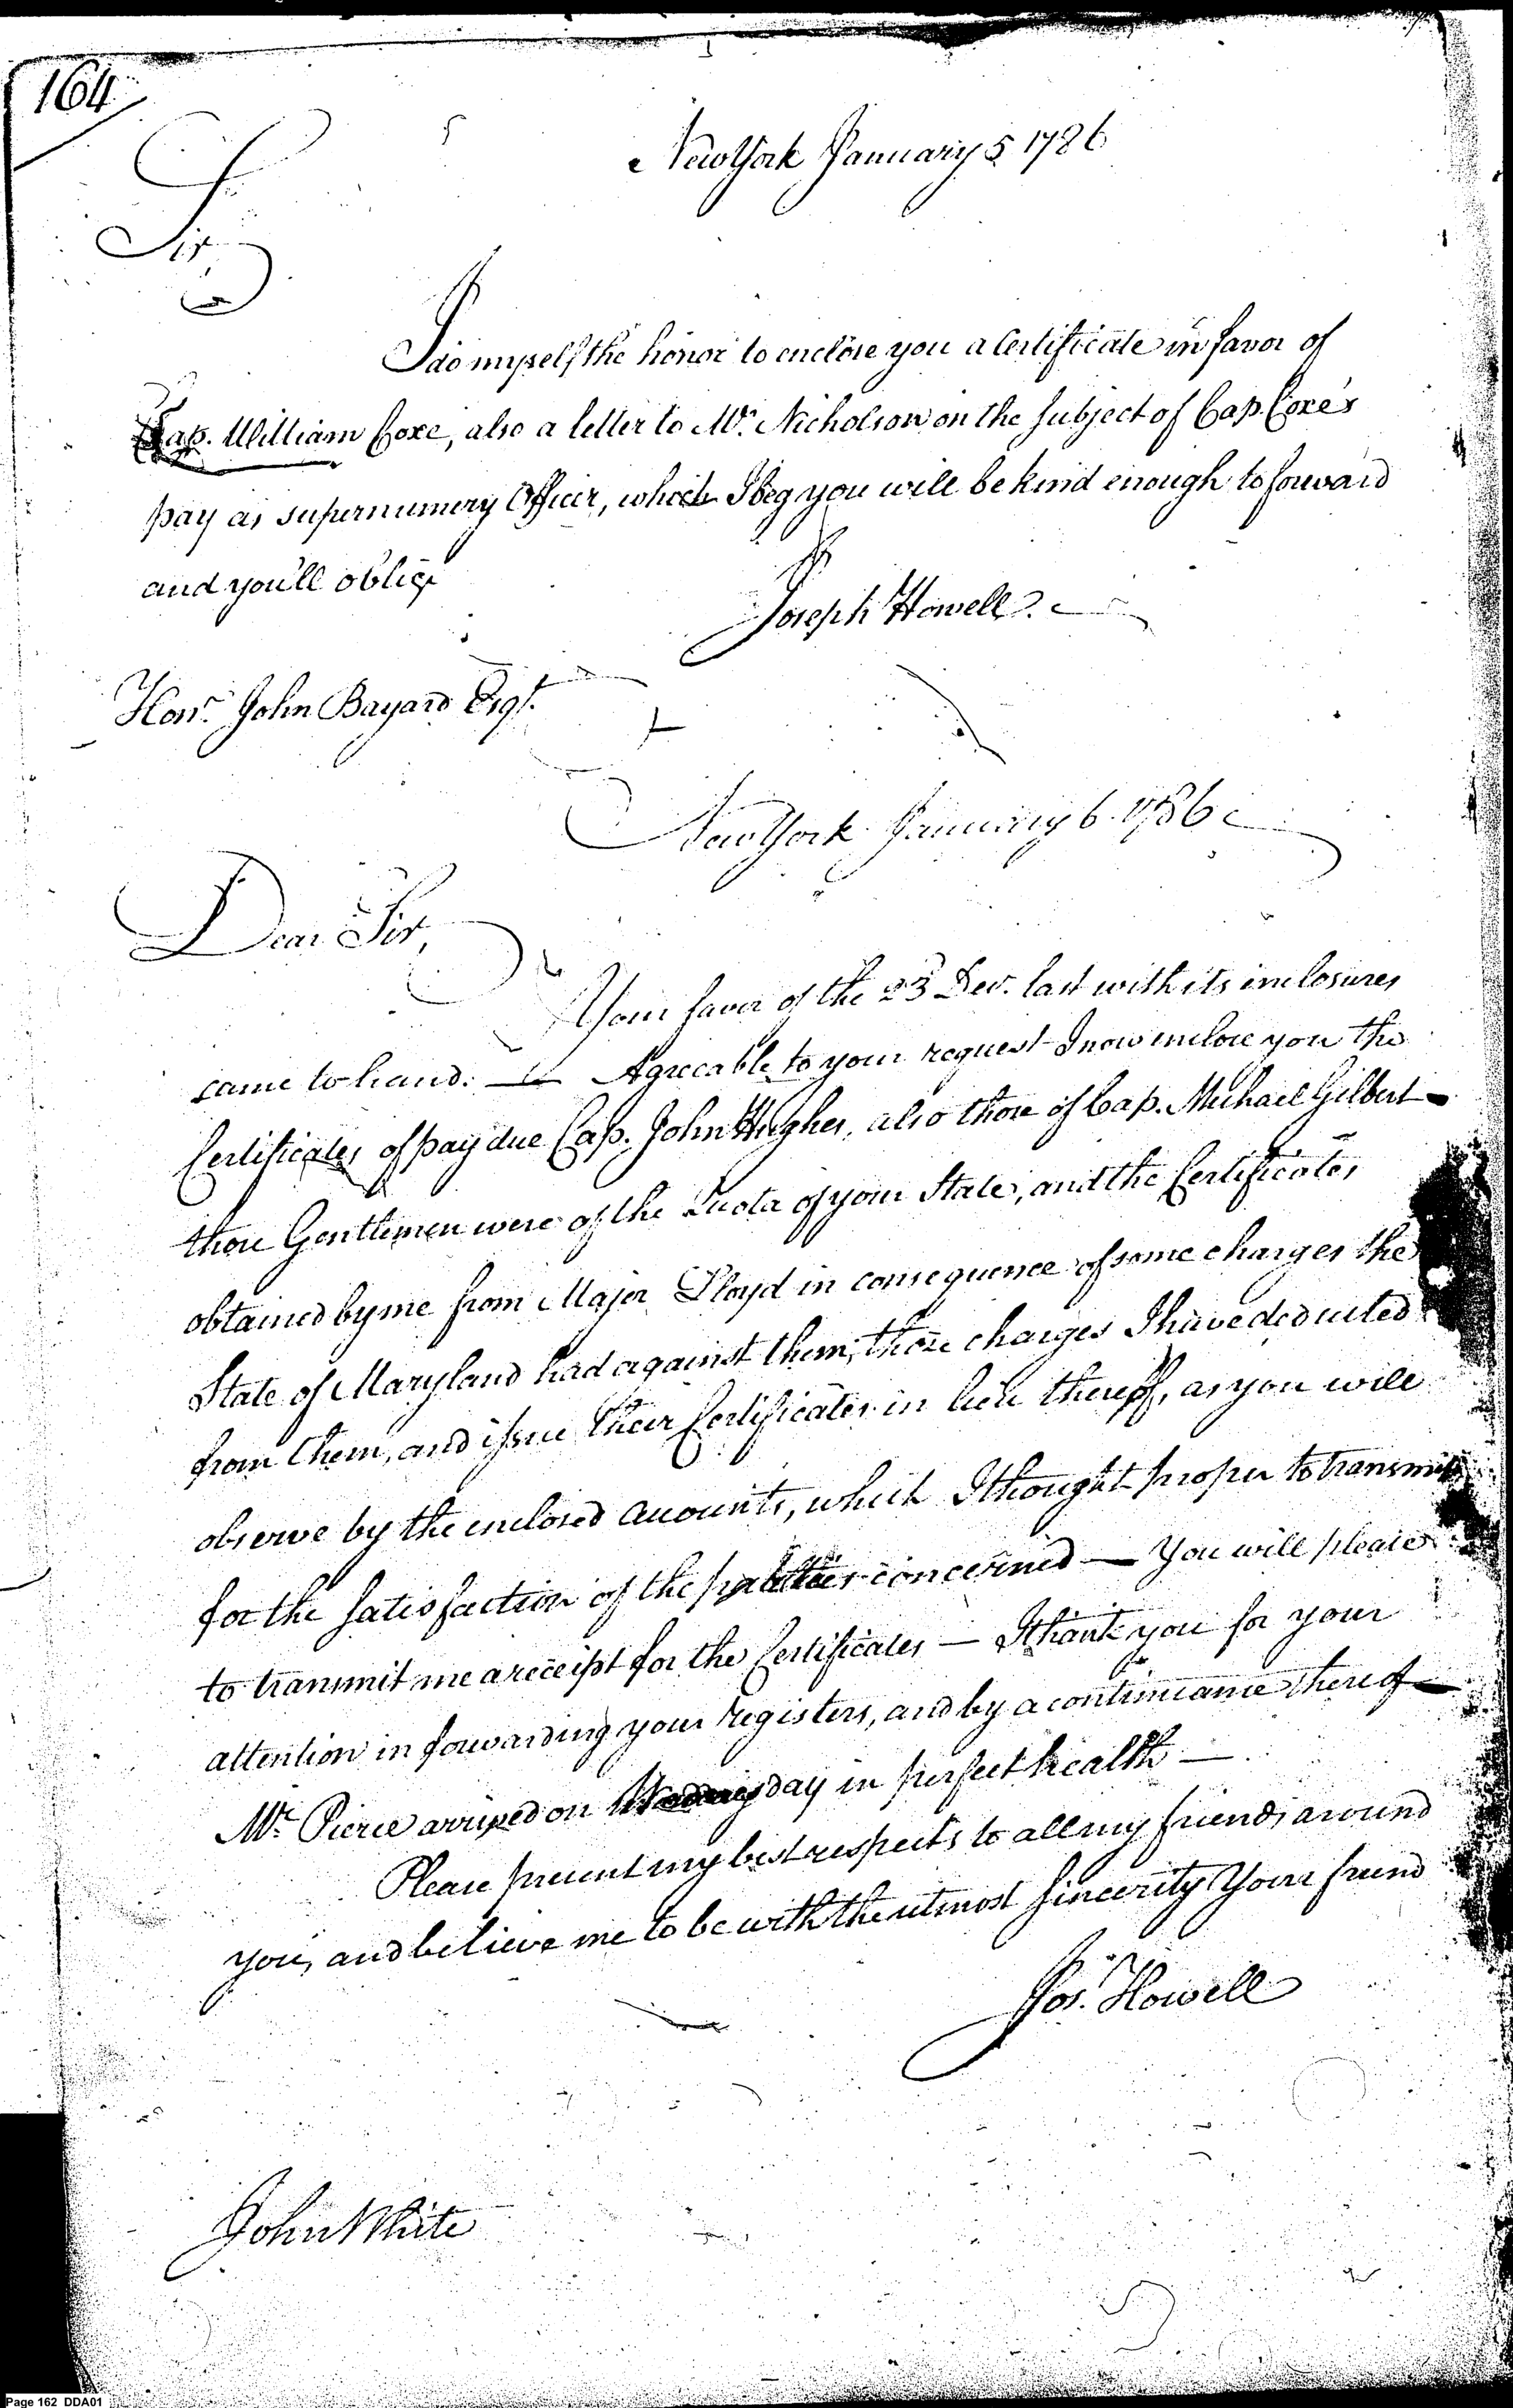 164
New York January 5 1786
Sir
I do myself the honor to enclose you a Certificate in favor of
Cap. William Coxe, also a letter to Mr. Nicholson on the subject of Cap. Coxe's
pay as supernumery Officer, which I beg you will be kind enough to forward
and you'll oblige
Joseph Howell
Honr. John Bayard Esqr.
New York January 6. 1786
Dear Sir,
Your favor of the 23 Dec. last with its inclosures
came to hand. — Agreeable to your request I now inclose you the
Certificates of pay due Cap. John Hughes, also those of Cap. Michael Gilbert —
those Gentlemen were of the Quota of your State, and the Certificates
obtained by me from Major Lloyd in consequence of some charges the
State of Maryland had against them, those charges I have deducted
from them, and issue their Certificates in lieu thereof, as you will
observe by the enclosed accounts, which I thought proper to transmit
for the satisfaction of the parties concerned — You will please
to transmit me a receipt for the Certificates — I thank you for your
attention in forwarding your registers, and by a continuance thereof —
Mr. Pierce arrived on Wednesday in perfect health —
Please present my best respects to all my friends around
you, and believe me to be with the utmost sincerity Your friend
Jos. Howell
John White
Page 162 DDA01